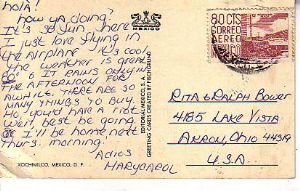 hola!
how ya doing?
It's so fun here
I just love flying in
the airplane it's cool
the weather is great
it rains only in
the afternoon for
awhile. There are so
many things to buy.
Ho, youst have a ride
wait, best be going
I'll be home next
Thurs. morning.
Adios
Maryoarol
XOCHIMILCO, MEXICO, D. F.
MEXICO
EDITORIAL MEXICO, S. A.
GREETING CARDS CREATED BY FISCHGRUND
80 CTS
CORREO
AEREO
Rita & Ralph Bower
4185 Lake Vista
Akron, Ohio 44319
U.S.A.